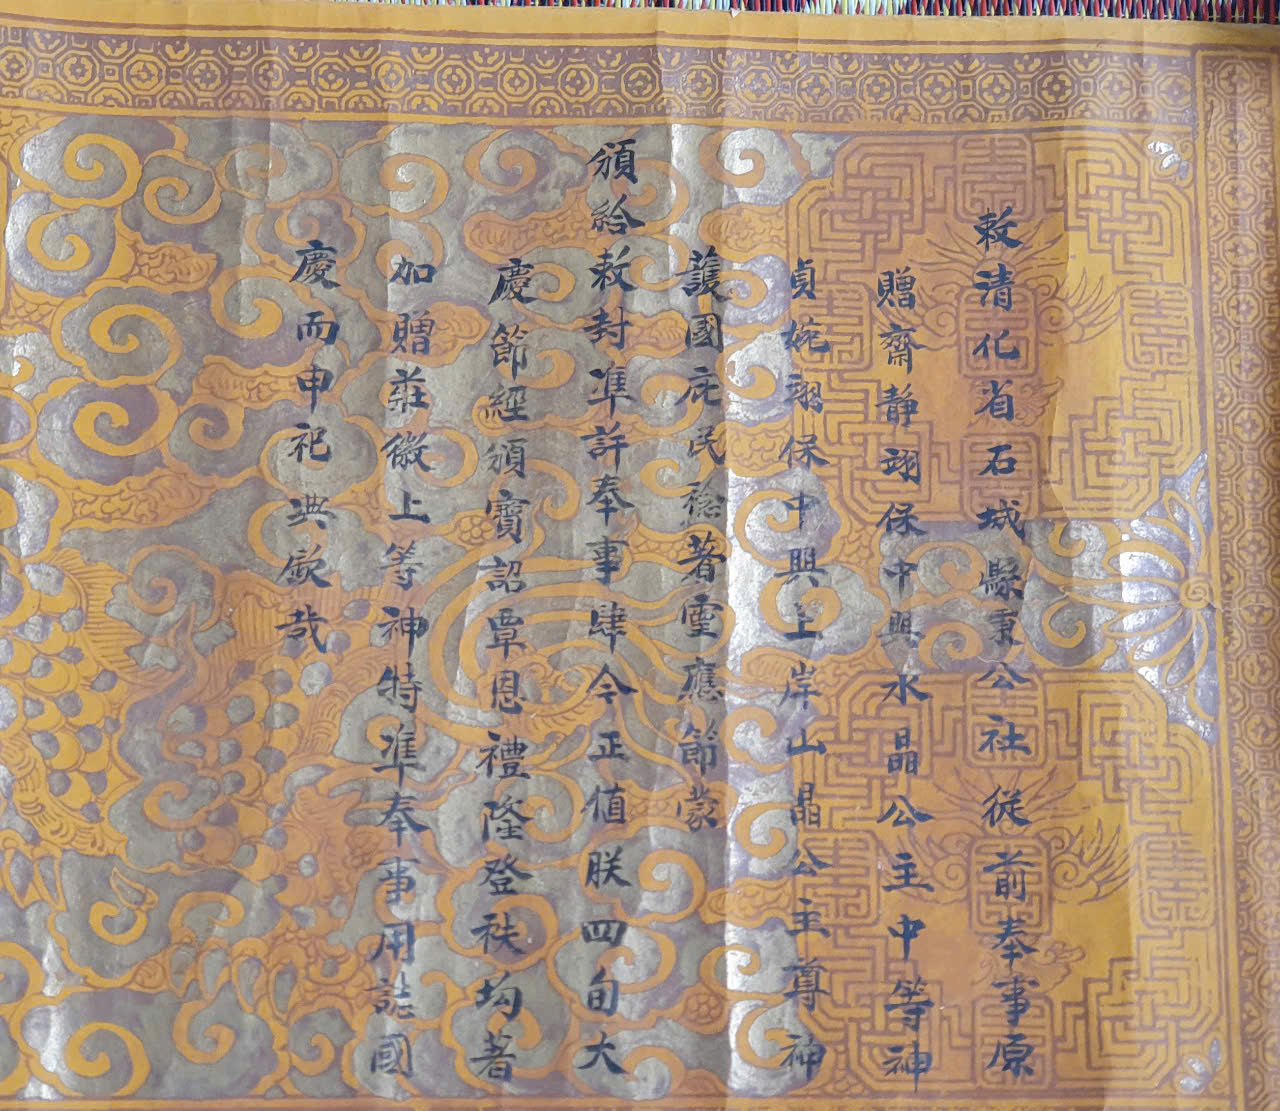 敕清化省石城縣秉公社從前奉事原
贈齋靜翊保中興水晶公主中等神
貞婉翊保中興上岸山晶公主尊神
護國庇民稔著靈應節蒙
頒給敕封準許奉事肆今正值朕四旬大
慶節經頒寶詔覃恩禮隆登秩均著
加贈莊徽上等神特準奉事用誌國
慶而申祀典欽哉